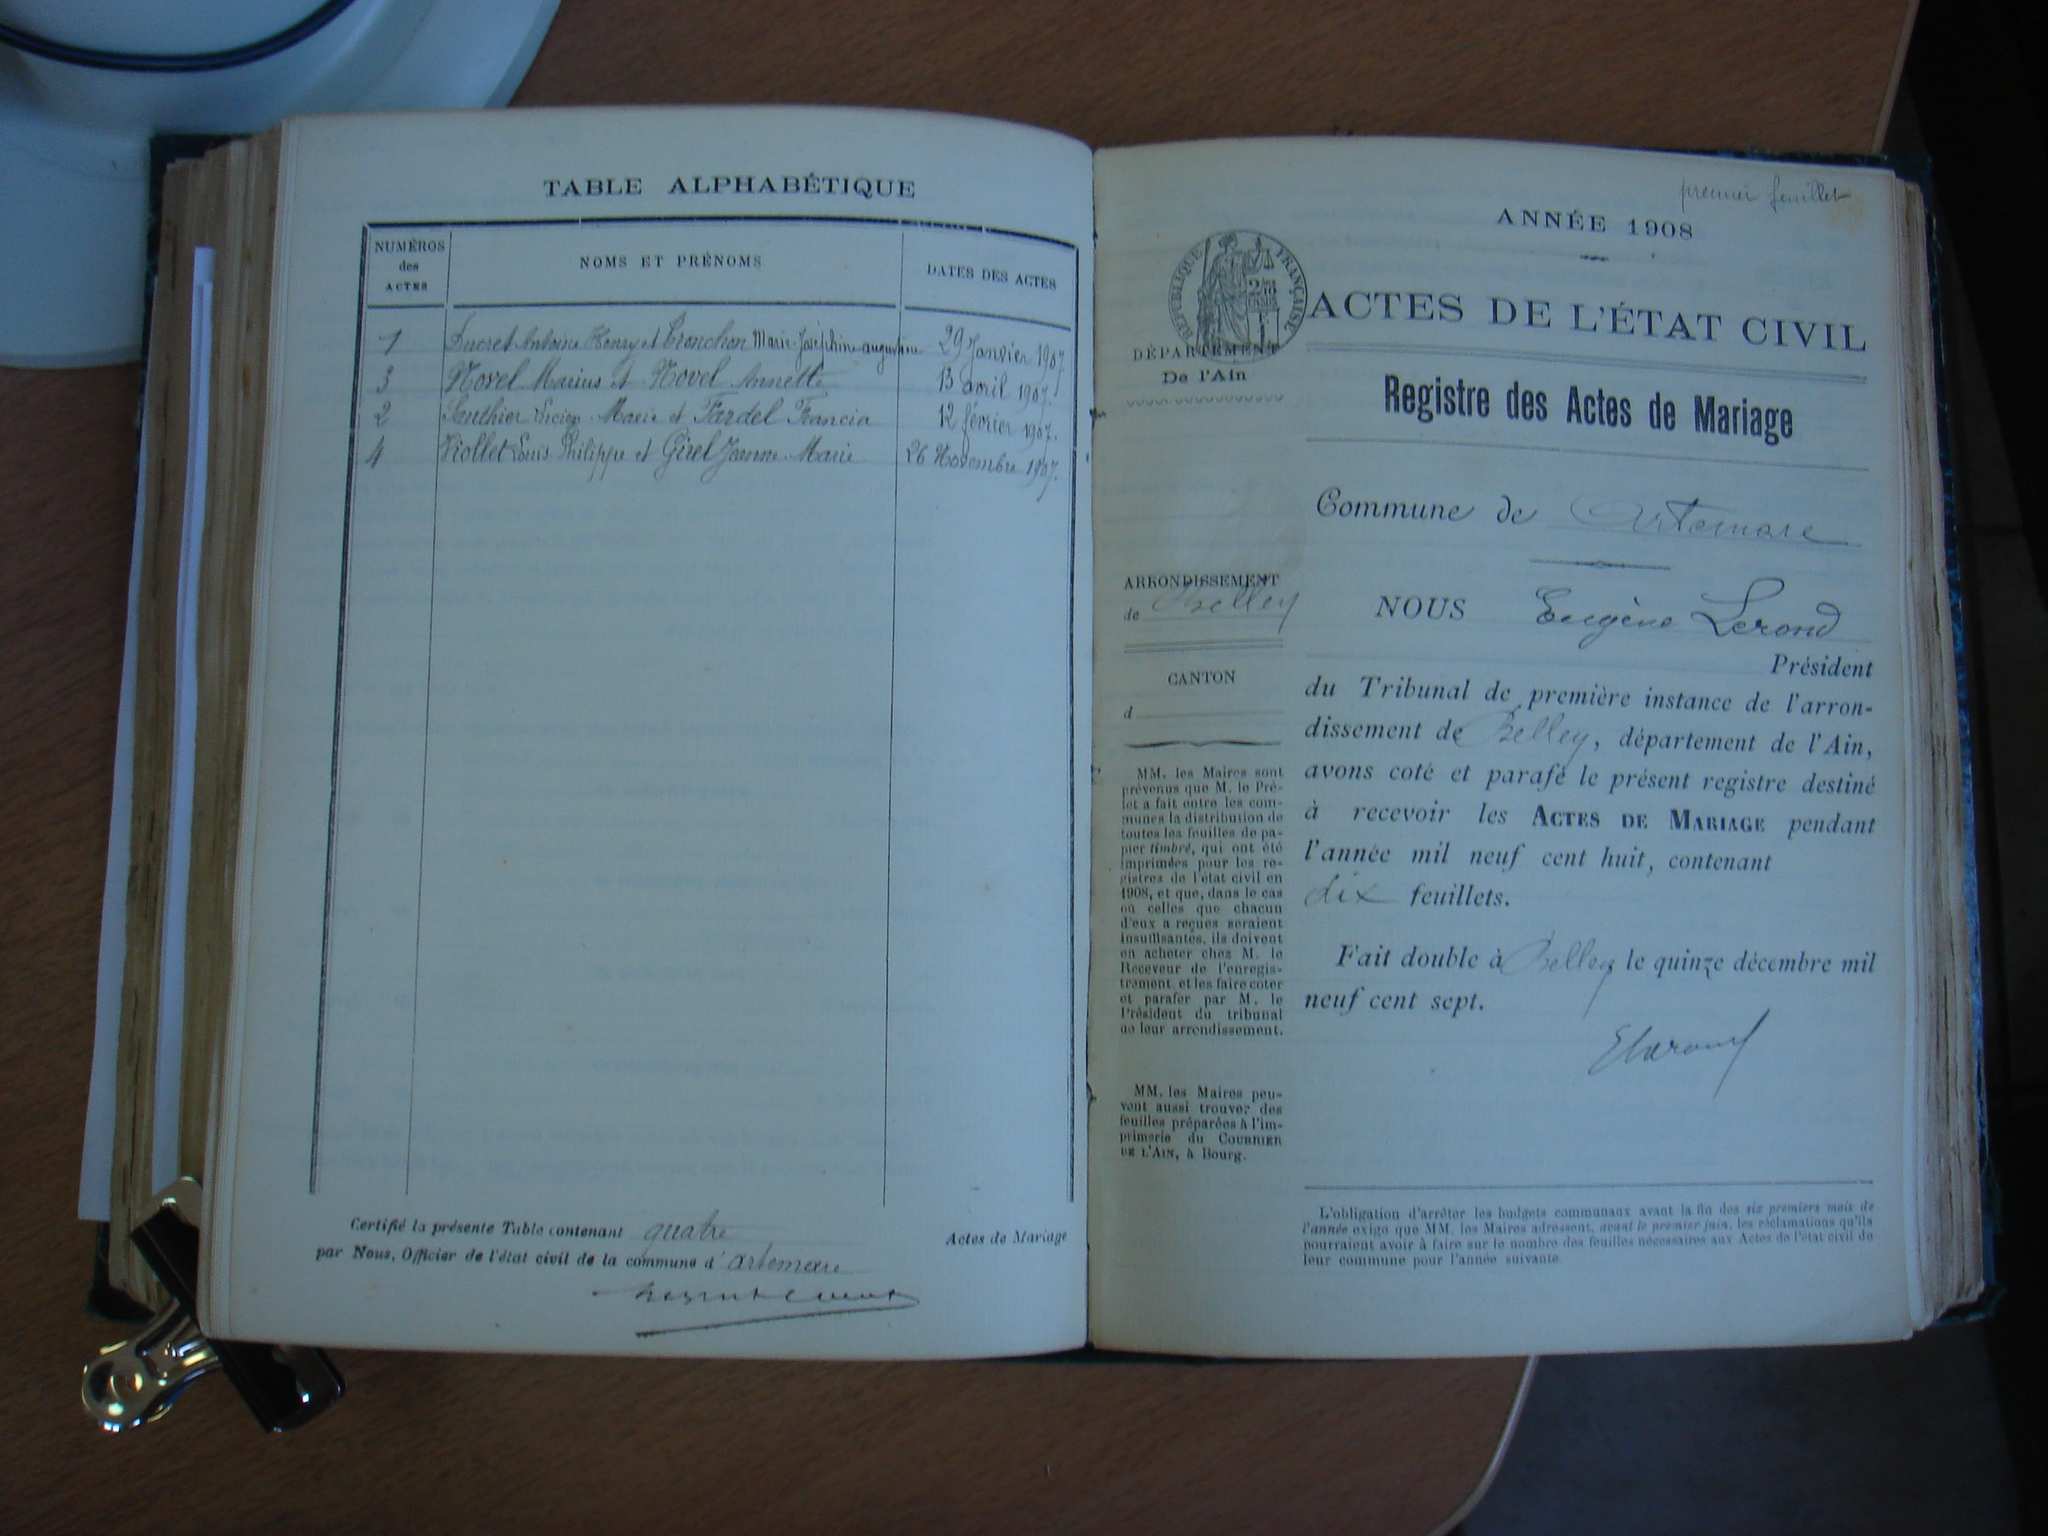 TABLE ALPHABÉTIQUE
NUMÉROS
des
ACTES
NOMS ET PRÉNOMS
DATES DES ACTES
1 Ducret Antoine Henry et Tronchon Marie Joséphine augustine 29 Janvier 1907
3 Novel Marius et Novel Annette 13 avril 1907.
2 Lucien Marie et Tardel Francia 12 février 1907.
4 Viollet Louis Philippe et Girel Jeanne Marie 26 Novembre 1907.
Certifié la présente Table contenant quatre Actes de Mariage
par Nous, Officier de l'état civil de la commune d'artemare
premier feuillet
ANNÉE 1908
RÉPUBLIQUE FRANÇAISE
ACTES DE L'ÉTAT CIVIL
DÉPARTEMENT
De l'Ain
Registre des Actes de Mariage
Commune de Artemare
ARRONDISSEMENT
de Belley
CANTON
d
MM. les Maires sont
prévenus que M. le Pré-
fet a fait entre les com-
munes la distribution de
toutes les feuilles de pa-
pier timbré, qui ont été
imprimées pour les re-
gistres de l'état civil en
1908, et que, dans le cas
où celles que chacun
d'eux a reçues seraient
insuffisantes, ils doivent
en acheter chez M. le
Receveur de l'enregis-
trement, et les faire coter
et parafer par M. le
Président du tribunal
de leur arrondissement.
MM. les Maires peu-
vent aussi trouver des
feuilles préparées à l'im-
primerie du COURRIER
DE L'AIN, à Bourg.
NOUS Eugène Lerond
Président
du Tribunal de première instance de l'arron-
dissement de Belley, département de l'Ain,
avons coté et parafé le présent registre destiné
à recevoir les ACTES DE MARIAGE pendant
l'année mil neuf cent huit, contenant
dix feuillets.
Fait double à Belley le quinze décembre mil
neuf cent sept.
L'obligation d'arrêter les budgets communaux avant la fin des six premiers mois de
l'année exige que MM. les Maires adressent, avant le premier juin, les réclamations qu'ils
pourraient avoir à faire sur le nombre des feuilles nécessaires aux Actes de l'état civil de
leur commune pour l'année suivante.